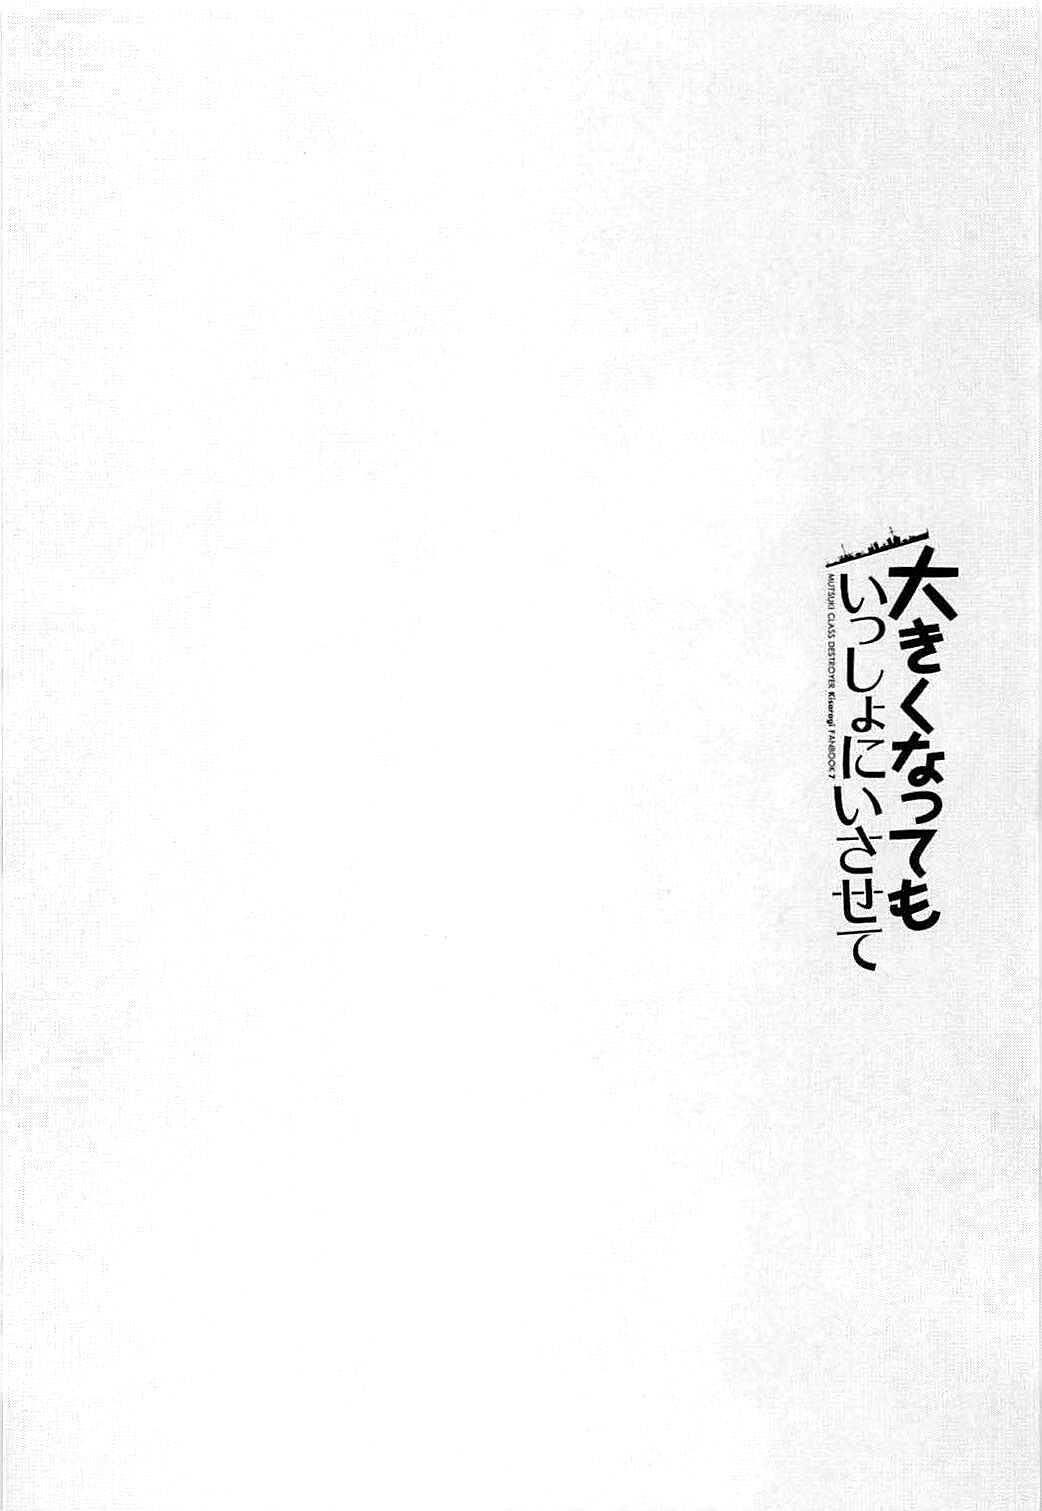 大きくなっても
いっしょにいさせて
MUTSUKI CLASS DESTROYER Kisaragi FANBOOK 7